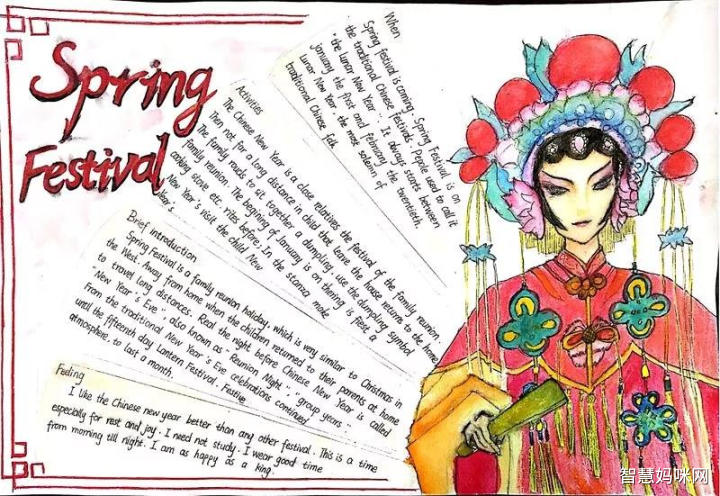 Spring
Festival
When
Spring festival is coming. Spring Festival is on
the traditional Chinese festivals. People used to call it
"the lunar New Year". It always starts between
January the first and february the twentieth.
Lunar New Year the most solemn of
traditional Chinese folk
Activities
The Chinese New Year is a close relatives the festival of the family reunion.
Then not for a long distance in child that leave the house returns to the home,
The family needs to sit together a dumpling, use the dumpling symbol
family reunion. The beginning of January is on thering is eject a
cooking stove etc. rites before); In the stanza make
New Year's visit the child New
Year's
Brief introduction
Spring Festival is a family reunion holiday, which is very similar to Christmas in
the West. Away from home when the children returned to their parents at home
to travel long distances. Real the night before Chinese New Year is called
"New Year's Eve", also known as "Reunion Night". "group years".
From the traditional New Year's Eve celebrations continued
until the fifteenth day Lantern Festival. Festive
atmosphere, to last a month.
Feeling
I like the Chinese new year better than any other festival. This is a time
especially for rest and joy. I need not study. I wear good time
from morning till night. I am as happy as a king.
智慧妈咪网